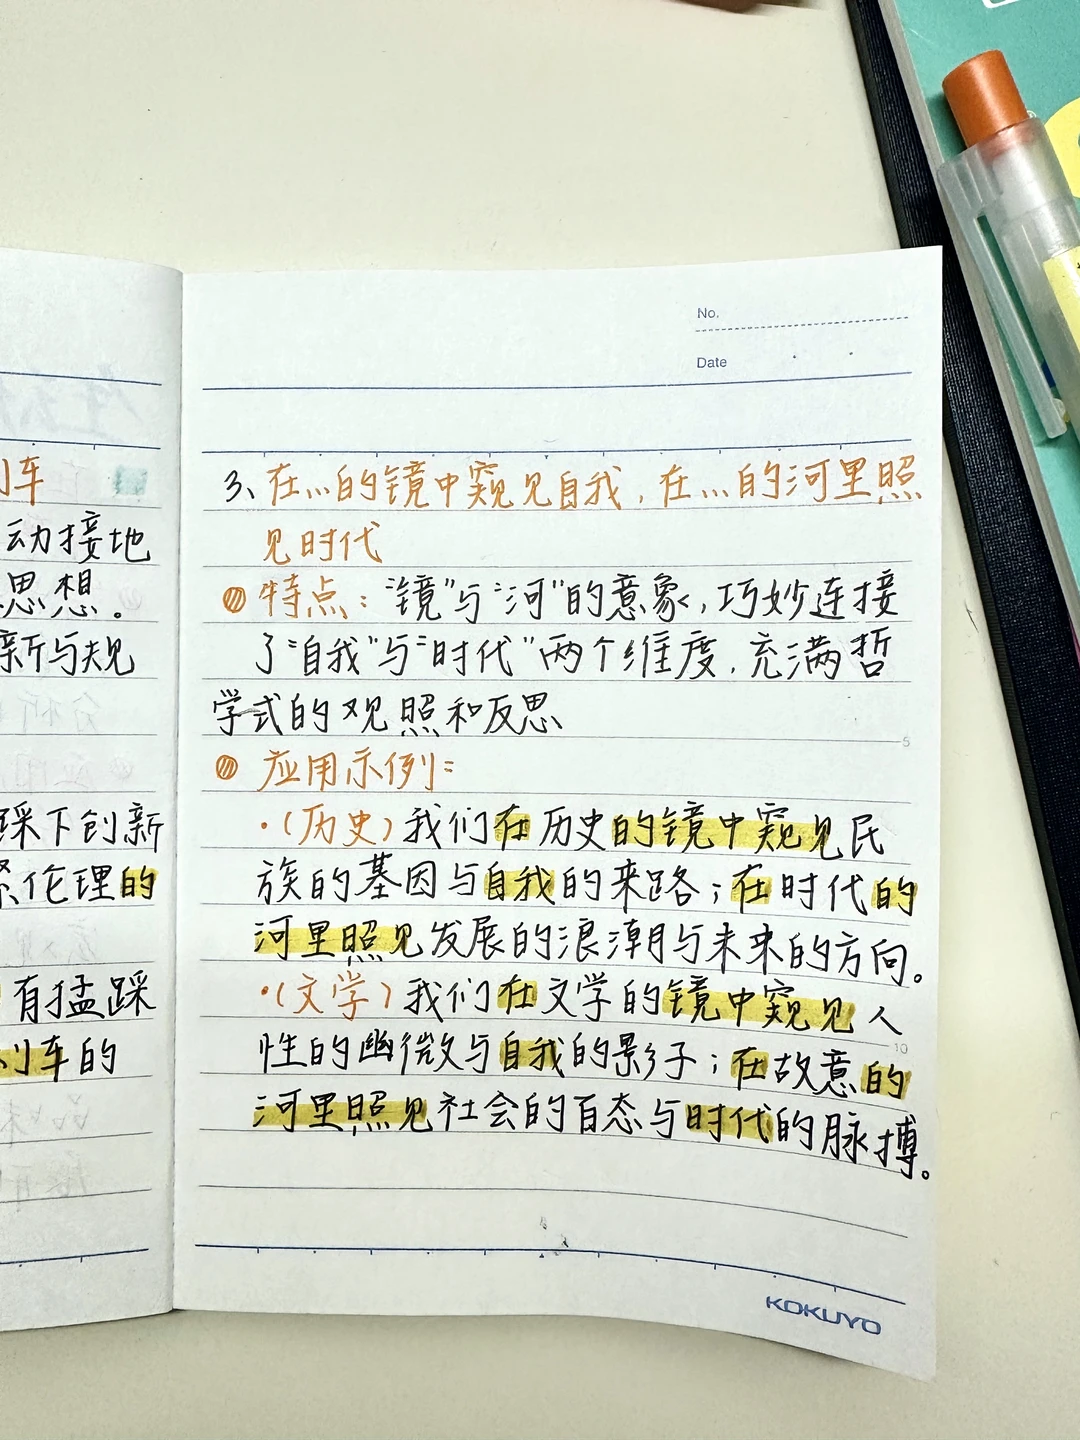 刂车
动接地
思想。
新与规
踩下创新
伦理的
有猛踩
刂车的
No.
Date
3、在…的镜中窥见自我，在…的河里照
见时代
特点："镜"与"河"的意象，巧妙连接
了"自我"与"时代"两个维度，充满哲
学式的观照和反思
5
应用示例：
·(历史)我们在历史的镜中窥见民
族的基因与自我的来路；在时代的
河里照见发展的浪潮与未来的方向。
·(文学)我们在文学的镜中窥见人
性的幽微与自我的影子；在故意的
10
河里照见社会的百态与时代的脉搏。
KOKUYO